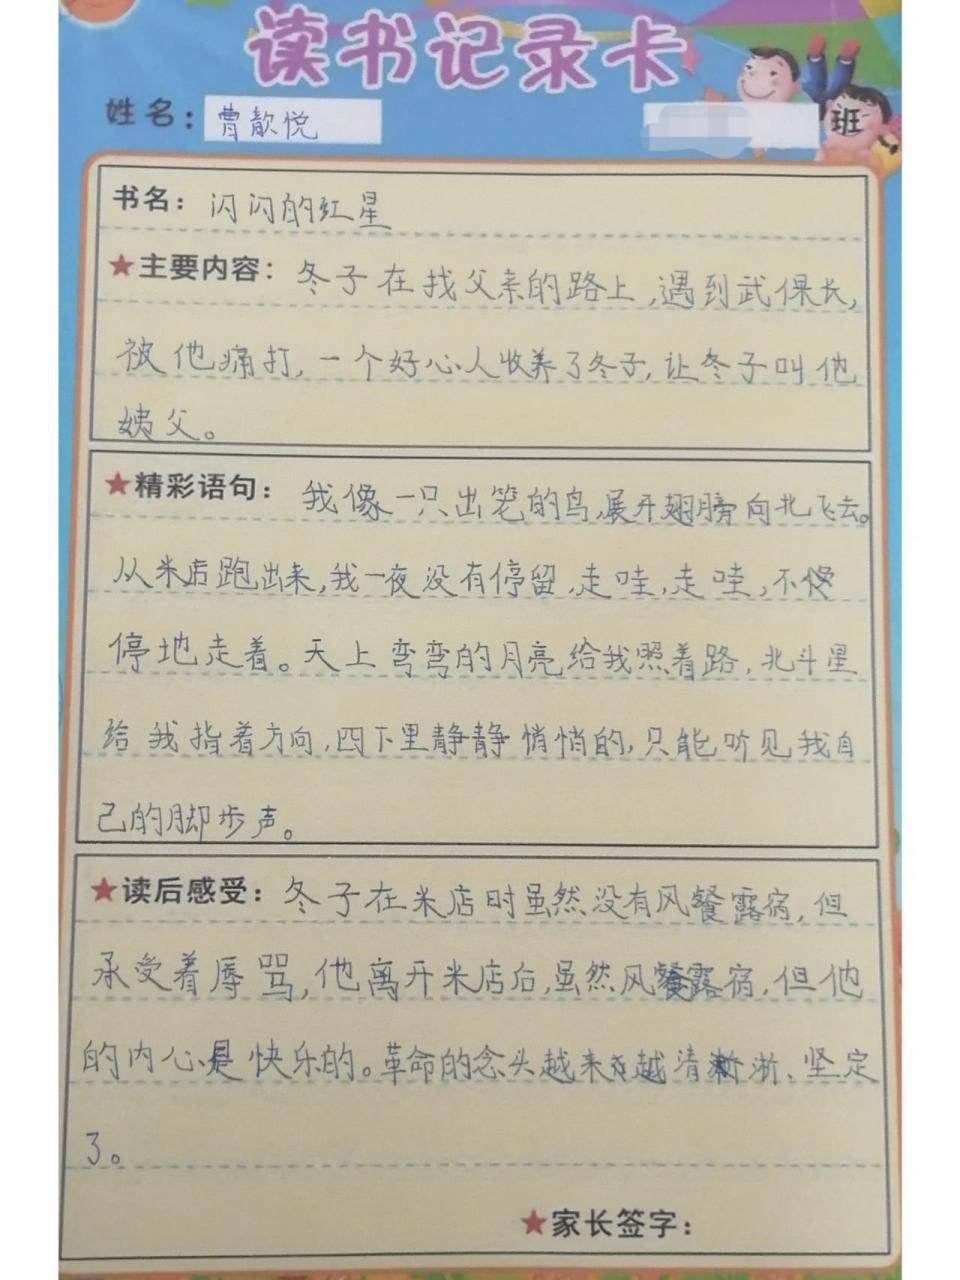 读书记录卡
姓名：曹歆悦
班
书名：闪闪的红星
★主要内容：冬子在找父亲的路上,遇到武保长,
被他痛打,一个好心人收养了冬子,让冬子叫他
姨父。
★精彩语句：我像一只出笼的鸟,展开翅膀向北飞去。
从米店跑出来,我一夜没有停留,走哇,走哇,不
停地走着。天上弯弯的月亮给我照着路,北斗星
给我指着方向,四下里静静悄悄的,只能听见我自
己的脚步声。
★读后感受：冬子在米店时虽然没有风餐露宿,但
承受着辱骂,他离开米店后,虽然风餐露宿,但他
的内心是快乐的。革命的念头越来越清淅、坚定
了。
★家长签字：